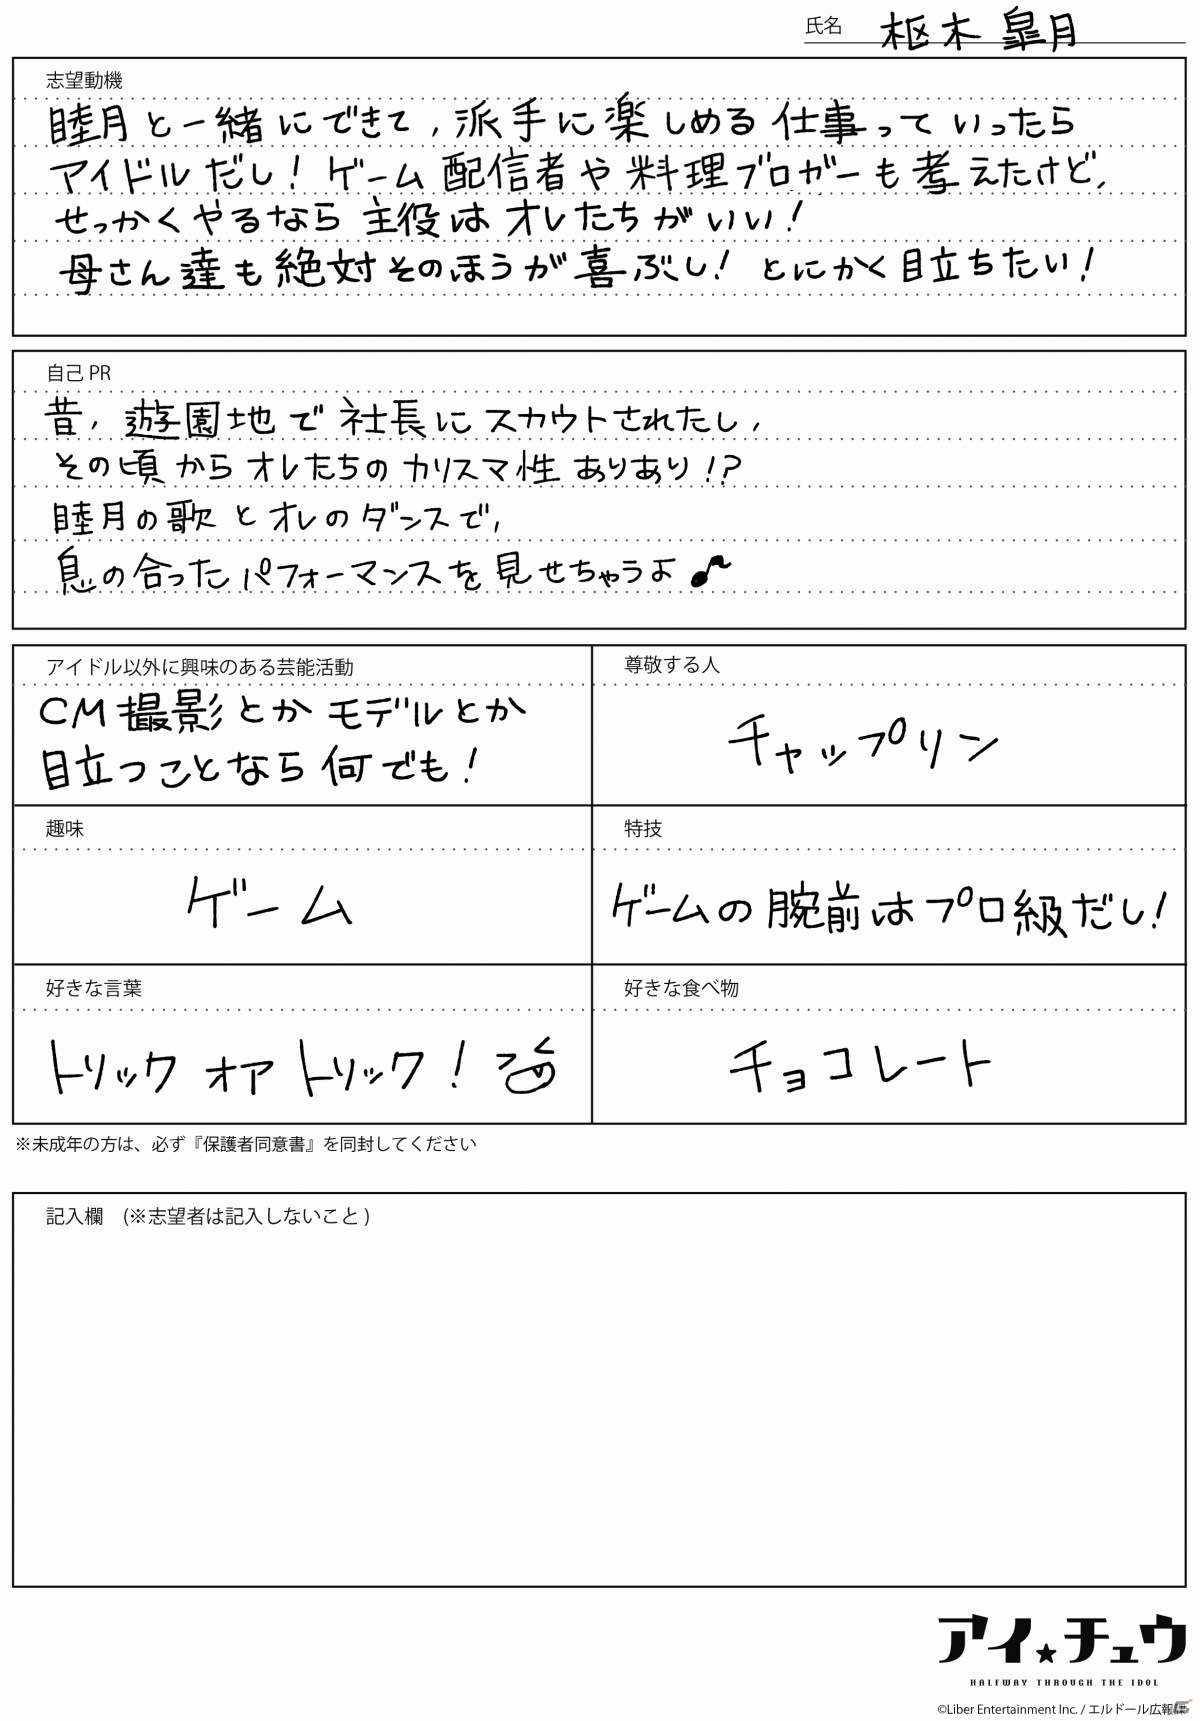 氏名 枢木 皐月
志望動機
睦月と一緒にできて、派手に楽しめる仕事っていったら
アイドルだし！ゲーム配信者や料理ブロガーも考えたけど、
せっかくやるなら主役はオレたちがいい！
母さん達も絶対そのほうが喜ぶし！とにかく目立ちたい！
自己 PR
昔、遊園地で社長にスカウトされたし、
その頃からオレたちのカリスマ性ありあり！？
睦月の歌とオレのダンスで、
息の合ったパフォーマンスを見せちゃうよ♪
アイドル以外に興味のある芸能活動
CM撮影とかモデルとか
目立つことなら何でも！
尊敬する人
チャップリン
趣味
ゲーム
特技
ゲームの腕前はプロ級だし！
好きな言葉
トリック オア トリック！
好きな食べ物
チョコレート
※未成年の方は、必ず『保護者同意書』を同封してください
記入欄 (※志望者は記入しないこと )
アイ★チュウ
HALFWAY THROUGH THE IDOL
©Liber Entertainment Inc. / エルドール広報課